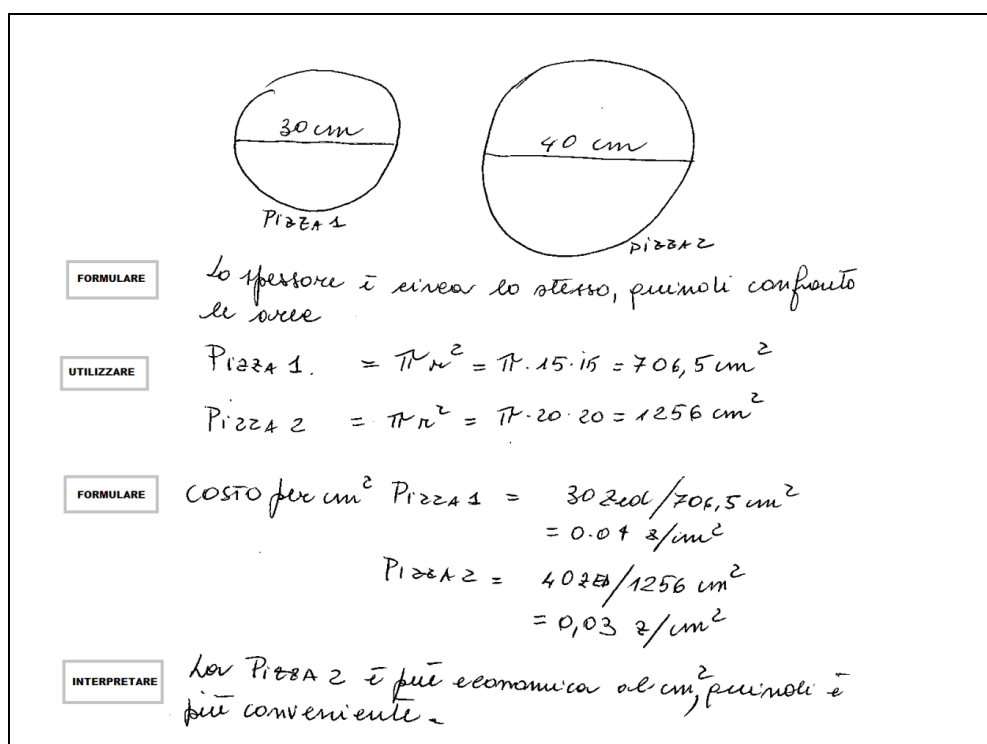 30 cm
40 cm
PIZZA 1
PIZZA 2
FORMULARE
Lo spessore è circa lo stesso, quindi confronto
le aree
UTILIZZARE
PIZZA 1. = πr² = π·15·15 = 706,5 cm²
PIZZA 2 = πr² = π·20·20 = 1256 cm²
FORMULARE
COSTO per cm² PIZZA 1 = 30 zed/706,5 cm²
= 0.04 z/cm²
PIZZA 2 = 40 zed/1256 cm²
= 0,03 z/cm²
INTERPRETARE
La PIZZA 2 è più economica al cm², quindi è
più conveniente.